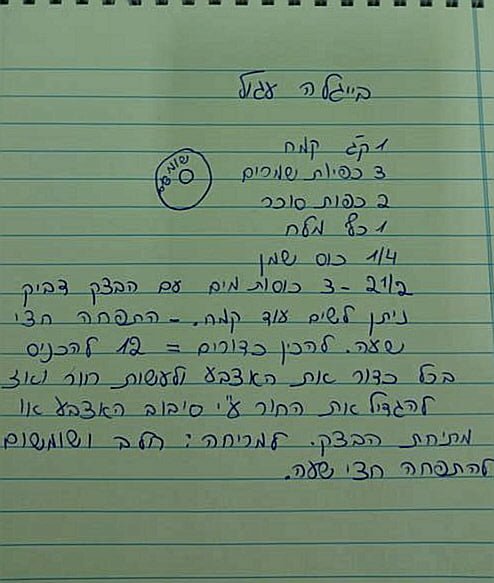 בייגלה עגול
1 ק"ג קמח
3 כפיות שמרים
שומשום
2 כפות סוכר
1 כף מלח
1/4 כוס שמן
2 1/2 - 3 כוסות מים עם הבצק דביק
ניתן לשים עוד קמח. - התפחה חצי
שעה. להכין כדורים = 12 להכניס
בכל כדור את האצבע ולעשות חור ואז
להגדיל את החור ע"י סיבוב האצבע או
מתיחת הבצק. למריחה: חלב ושומשום
להתפחה חצי שעה.